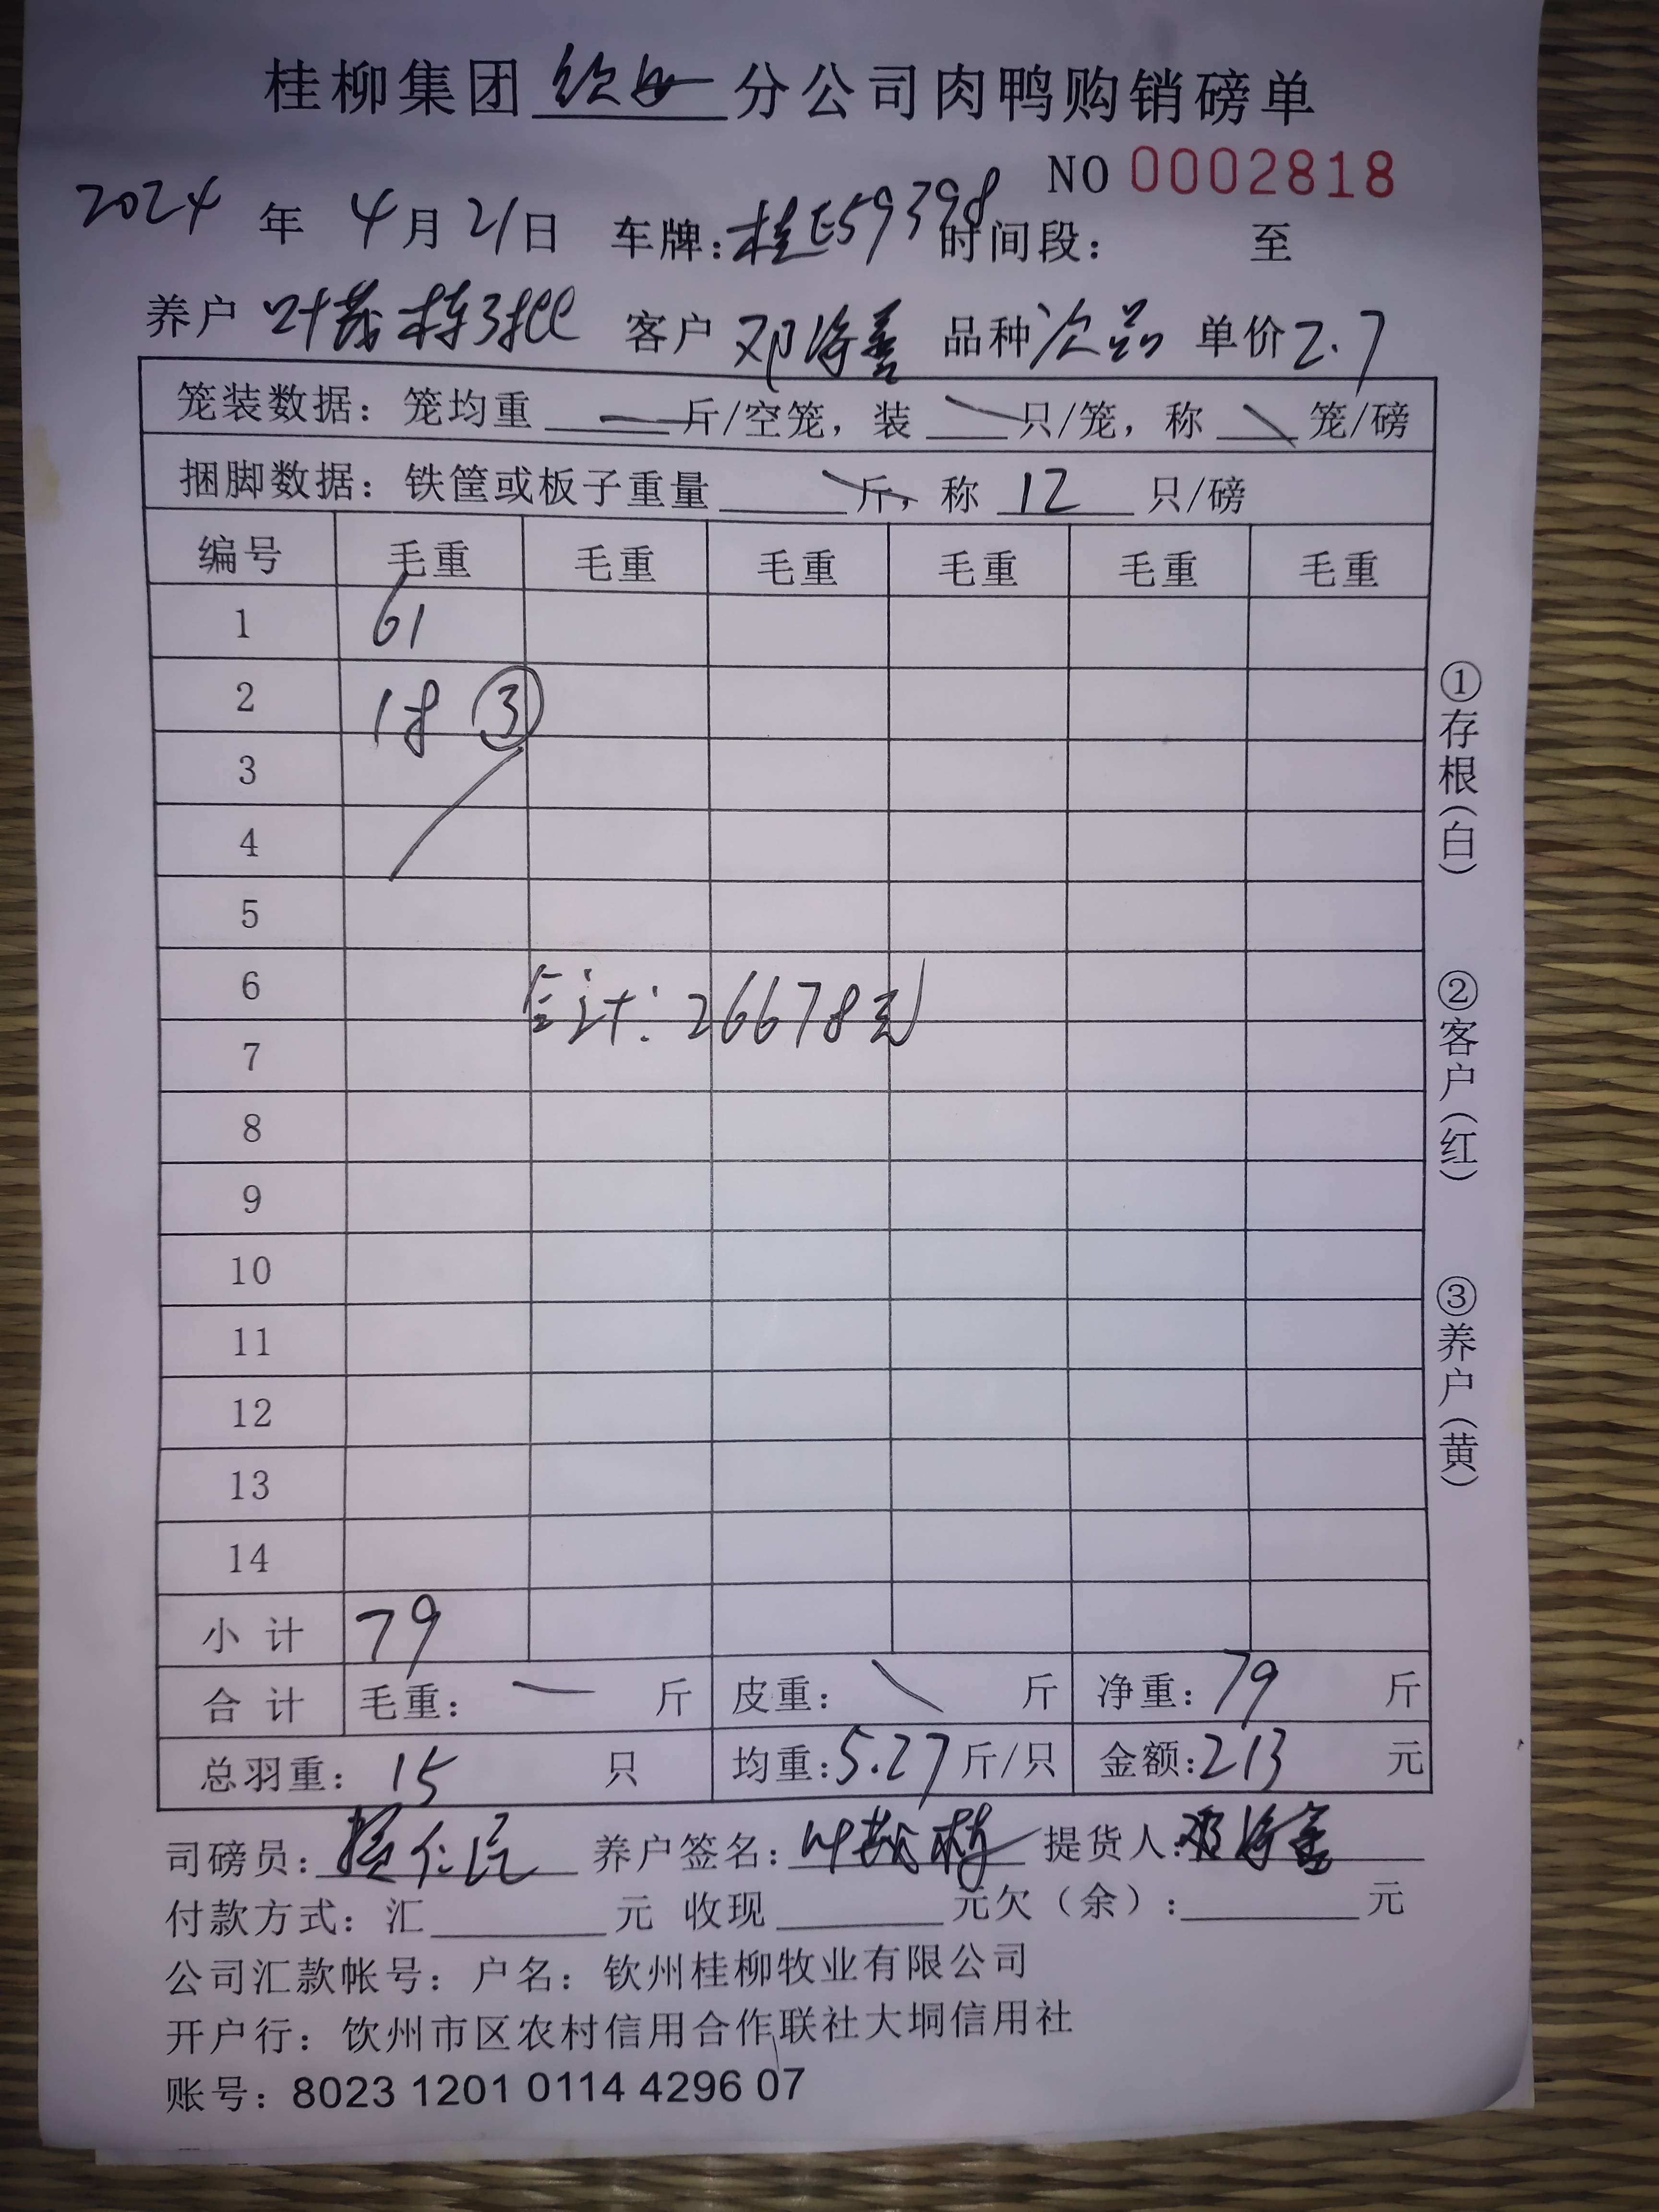 桂柳集团钦州分公司肉鸭购销磅单
NO 0002818
2024年 4月21日 车牌:桂E59398 时间段: 至
养户 叶茂栋3批 客户 邓海善 品种 次品 单价 2.7
笼装数据: 笼均重 斤/空笼, 装 只/笼, 称 笼/磅
捆脚数据: 铁筐或板子重量 斤, 称 12 只/磅
编号 毛重 毛重 毛重 毛重 毛重 毛重
1 61
2 18 ③
3
4
5
6
合计: 26678元
7
8
9
10
11
12
13
14
小计 79
合计 毛重: 斤 皮重: 斤 净重: 79 斤
总羽重: 15 只 均重: 5.27 斤/只 金额: 213 元
司磅员: 仁 养户签名: 叶茂栋 提货人: 邓海善
付款方式: 汇 元 收现 元欠(余): 元
公司汇款帐号: 户名: 钦州桂柳牧业有限公司
开户行: 饮州市区农村信用合作联社大垌信用社
账号: 8023 1201 0114 4296 07
①存根(白)
②客户(红)
③养户(黄)